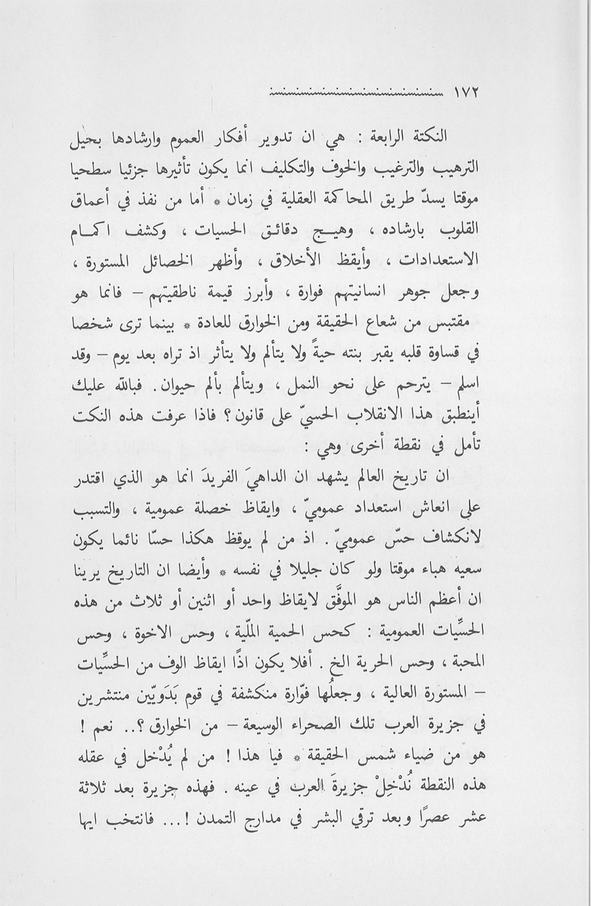 ١٧٢
النكتة الرابعة : هي ان تدوير أفكار العموم وارشادها بحيل
الترهيب والترغيب والخوف والتكليف انما يكون تأثيرها جزئيا سطحيا
موقتا يسدّ طريق المحاكمة العقلية في زمان * أما من نفذ في أعماق
القلوب بارشاده ، وهيــج دقائـق الحسيات ، وكشف اكمـام
الاستعدادات ، وأيقظ الأخلاق ، وأظهر الخصائل المستورة ،
وجعل جوهر انسانيتهم فوارة ، وأبرز قيمة ناطقيتهم – فانما هو
مقتبس من شعاع الحقيقة ومن الخوارق للعادة * بينما ترى شخصا
في قساوة قلبه يقبر بنته حيةً ولا يتألم ولا يتأثر اذ تراه بعد يوم – وقد
اسلم – يترحم على نحو النمل ، ويتألم بألم حيوان . فبالله عليك
أينطبق هذا الانقلاب الحسيّ على قانون ؟ فاذا عرفت هذه النكت
تأمل في نقطة أخرى وهي :
ان تاريخ العالم يشهد ان الداهيَ الفريدَ انما هو الذي اقتدر
على انعاش استعداد عموميّ ، وايقاظ خصلة عمومية ، والتسبب
لانكشاف حسّ عموميّ . اذ من لم يوقظ هكذا حسّا نائما يكون
سعيه هباء موقتا ولو كان جليلا في نفسه * وأيضا ان التاريخ يرينا
ان أعظم الناس هو الموفَّق لايقاظ واحد أو اثنين أو ثلاث من هذه
الحسِّيات العمومية : كحس الحمية الملّية ، وحس الاخوة ، وحس
المحبة ، وحس الحرية الخ . أفلا يكون اذًا ايقاظ الوف من الحسِّيات
– المستورة العالية ، وجعلُها فوّارة منكشفة في قوم بَدَويّين منتشرين
في جزيرة العرب تلك الصحراء الوسيعة – من الخوارق ؟.. نعم !
هو من ضياء شمس الحقيقة * فيا هذا ! من لم يُدْخل في عقله
هذه النقطة نُدْخِلْ جزيرةَ العرب في عينه . فهذه جزيرة بعد ثلاثة
عشر عصرًا وبعد ترقي البشر في مدارج التمدن !... فانتخب ايها